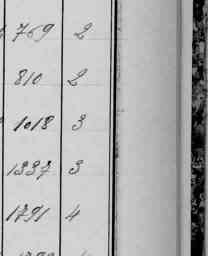 769 2
810 2
1018 3
1337 3
1791 4